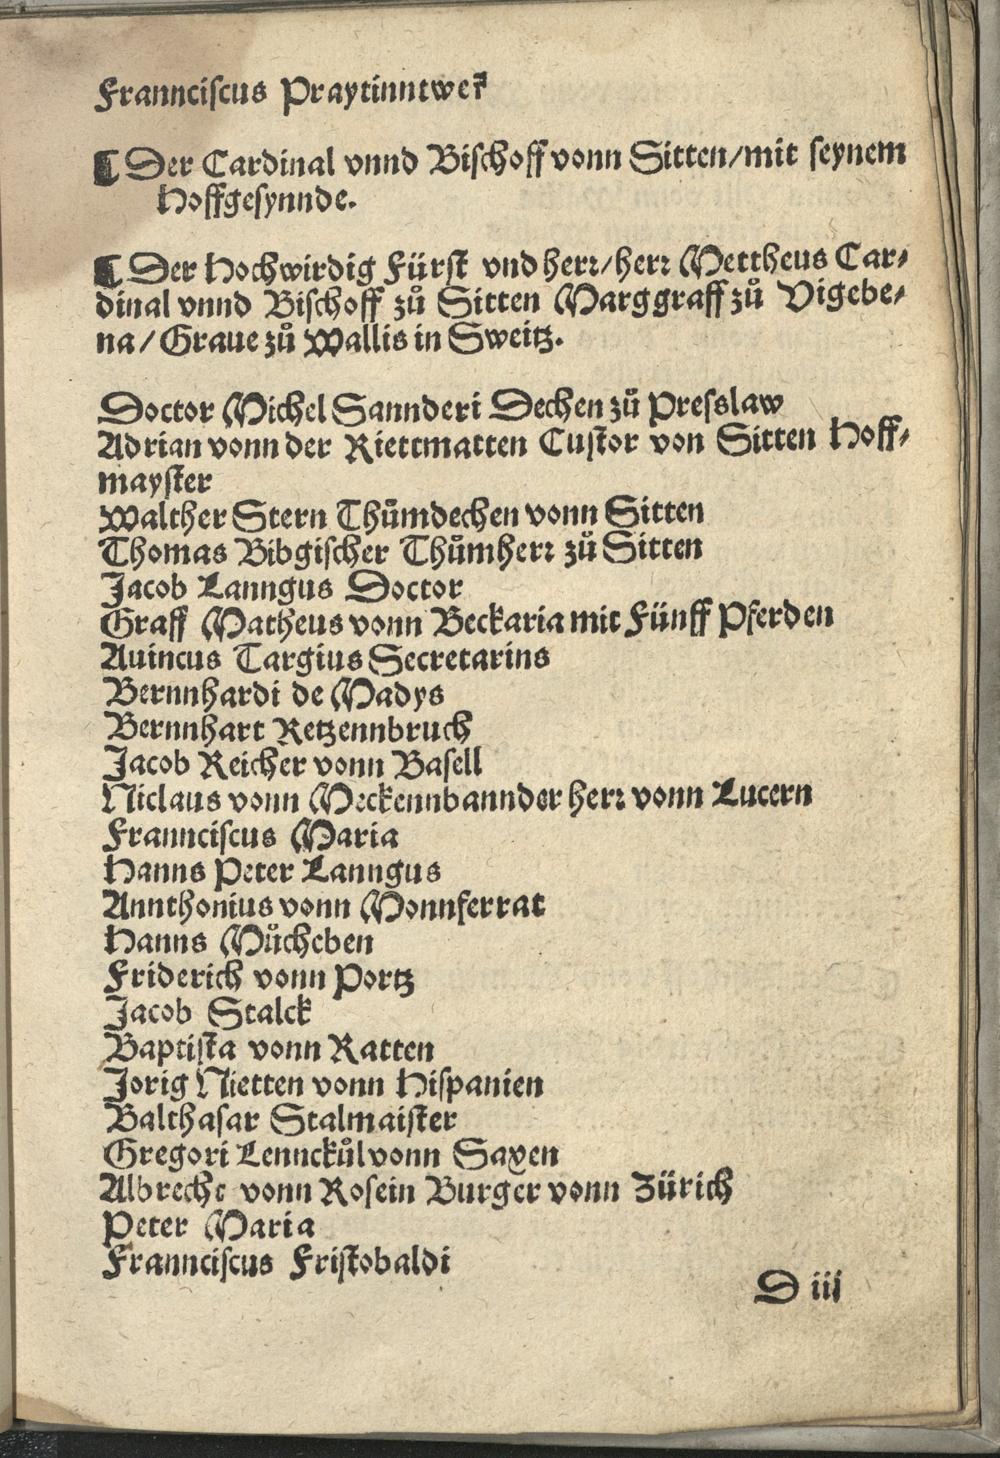 Frannciscus Praytinntwer̃
¶ Der Cardinal vnnd Bischoff vonn Sitten/mit seynem
Hoffgesynnde.
¶ Der Hochwirdig Fürst vnd herr/herr Mettheus Car⸗
dinal vnnd Bischoff zů Sitten Marggraff zů Vigebe⸗
na/Graue zů Wallis in Sweitz.
Doctor Michel Sannderi Dechen zů Presslaw
Adrian vonn der Riettmatten Custor von Sitten Hoff⸗
mayster
Walther Stern Thůmdechen vonn Sitten
Thomas Bibgischer Thůmherr zů Sitten
Jacob Lanngus Doctor
Graff Matheus vonn Beckaria mit Fünff Pferden
Auincus Targius Secretarins
Bernnhardi de Madys
Bernnhart Retzennbruch
Jacob Reicher vonn Basell
Niclaus vonn Meckennbannder herr vonn Lucern
Frannciscus Maria
Hanns Peter Lanngus
Annthonius vonn Monnferrat
Hanns Můcheben
Friderich vonn Portz
Jacob Stalck
Baptista vonn Ratten
Jorig Nietten vonn Hispanien
Balthasar Stalmaister
Gregori Lennckůl vonn Saxen
Albrecht vonn Rosein Burger vonn Zürich
Peter Maria
Frannciscus Fristobaldi
D iij